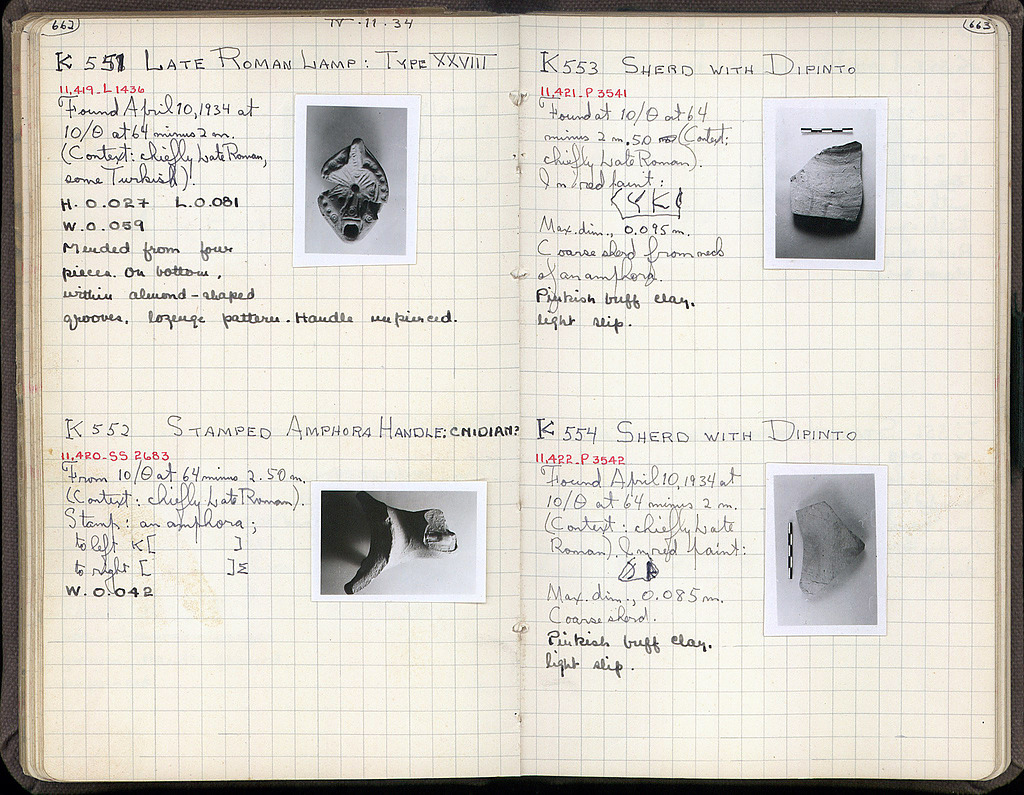 662
IV.11.34
K 551 LATE ROMAN LAMP: TYPE XXVIII
11,419_L 1436
Found April 10, 1934 at
10/Θ at 64 minus 2 m.
(Context: chiefly Late Roman,
some Turkish).
H. 0.027 L. 0.081
W. 0.059
Mended from four
pieces. On bottom,
within almond-shaped
grooves, lozenge pattern. Handle unpierced.
K 552 STAMPED AMPHORA HANDLE: CNIDIAN?
11,420_SS 2683
From 10/Θ at 64 minus 2.50 m.
(Context: chiefly Late Roman).
Stamp: an amphora;
to left K[ ]
to right [ ]Σ
W. 0.042
663
K 553 SHERD WITH DIPINTO
11,421_P 3541
Found at 10/Θ at 64
minus 2 m. 50 (Context:
chiefly Late Roman).
In red paint:
Max. dim., 0.095 m.
Coarse sherd from neck
of an amphora.
Pinkish buff clay,
light slip.
K 554 SHERD WITH DIPINTO
11,422_P 3542
Found April 10, 1934 at
10/Θ at 64 minus 2 m.
(Context: chiefly Late
Roman). In red paint:
Max. dim., 0.085 m.
Coarse sherd.
Pinkish buff clay,
light slip.